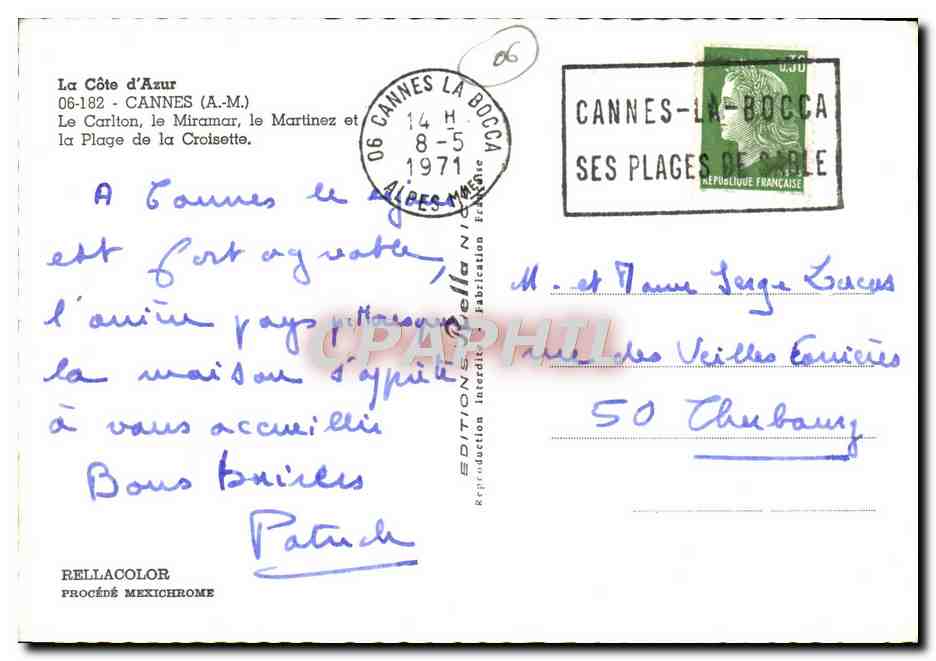 La Côte d'Azur
06-182 - CANNES (A.-M.)
Le Carlton, le Miramar, le Martinez et
la Plage de la Croisette.
A Cannes le séjour
est fort agréable,
l'arrière pays
la maison s'apprête
à vous accueillir
Bons baisers
Patrick
RELLACOLOR
PROCÉDÉ MEXICHROME
06
06 CANNES LA BOCCA
14 H
8-5
1971
ALPES-MMES
CANNES-LA-BOCCA
SES PLAGES DE SABLE
0,30
REPUBLIQUE FRANÇAISE
EDITIONS Rella NICE
Reproduction Interdite - Fabrication Française
CPAPHIL
M. et Mame Serge Lucas
rue des Veilles
50 Cherbourg